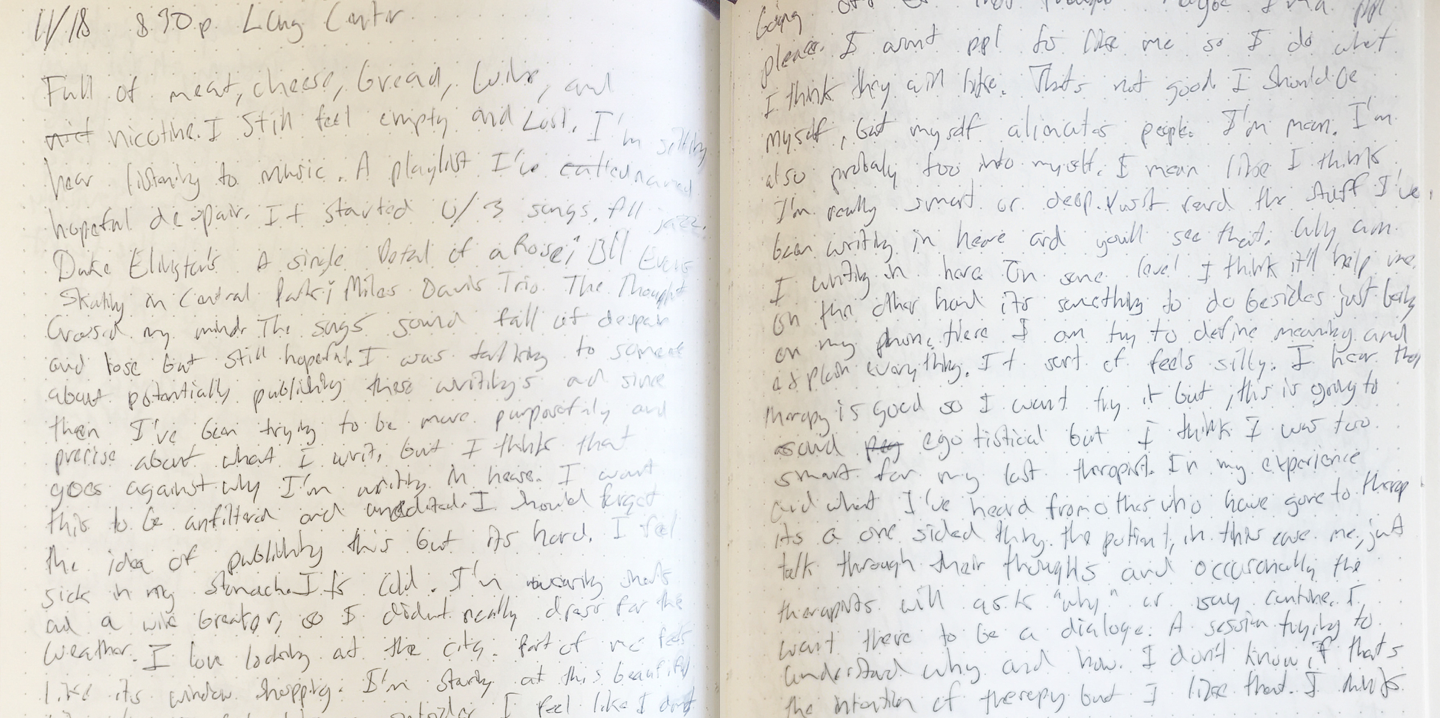 11/18 8:30p. Long Center
Full of meat, cheese, bread, wine, and
nicotine. I Still feel empty and Lost. I'm sitting
hear listening to music. A playlist I've named
hopeful despair. It started w/ 3 songs. All jazz.
Duke Elington's A single Petal of a Rose; Bill Evans
Skating in Central Park; Miles Davis Trio. The Thought
Crossed my mind. The songs sound full of despair
and lose but still hopeful. I was talking to someone
about potentially publishing these writing's and since
then I've been trying to be more purposefuly and
precise about what I write, but I think that
goes against why I'm writing in hease. I want
this to be unfiltered and unedited. I should forget
the idea of publishing this but its hard. I feel
sick in my Stomache. It's cold. I'm wearing shorts
and a wind breaker, so I didnt really dress for the
weather. I love looking at the city. Part of me feels
like its window shopping. I'm staring at this beautiful
I feel like I dont
Going maybe I'm a ppl
pleaser. I want ppl to like me so I do what
I think they will like. That's not good I should be
myself, but myself alienates people. I'm mean. I'm
also probaly too into myself. I mean like I think
I'm really smart or deep. Just read the stuff I've
been writing in heare and youll see that. Why am
I writing in here On some level I think it'll help me.
On the other hand its something to do besides just being
on my phone. Here I am try to define meaning and
explain everything. It sort of feels silly. I hear that
therapy is good so I want try it but, this is going to
sound egotistical but I think I was too
smart for my last therapist. In my experience
and what I've heard from others who have gone to therapy
its a one sided thing. the patient, in this case me, just
talk through their thoughts and occasionally the
therapists will ask "why" or say continue. I
want there to be a dialoge. A session trying to
understand why and how. I don't know if that's
the intention of therepy but I like that. I think